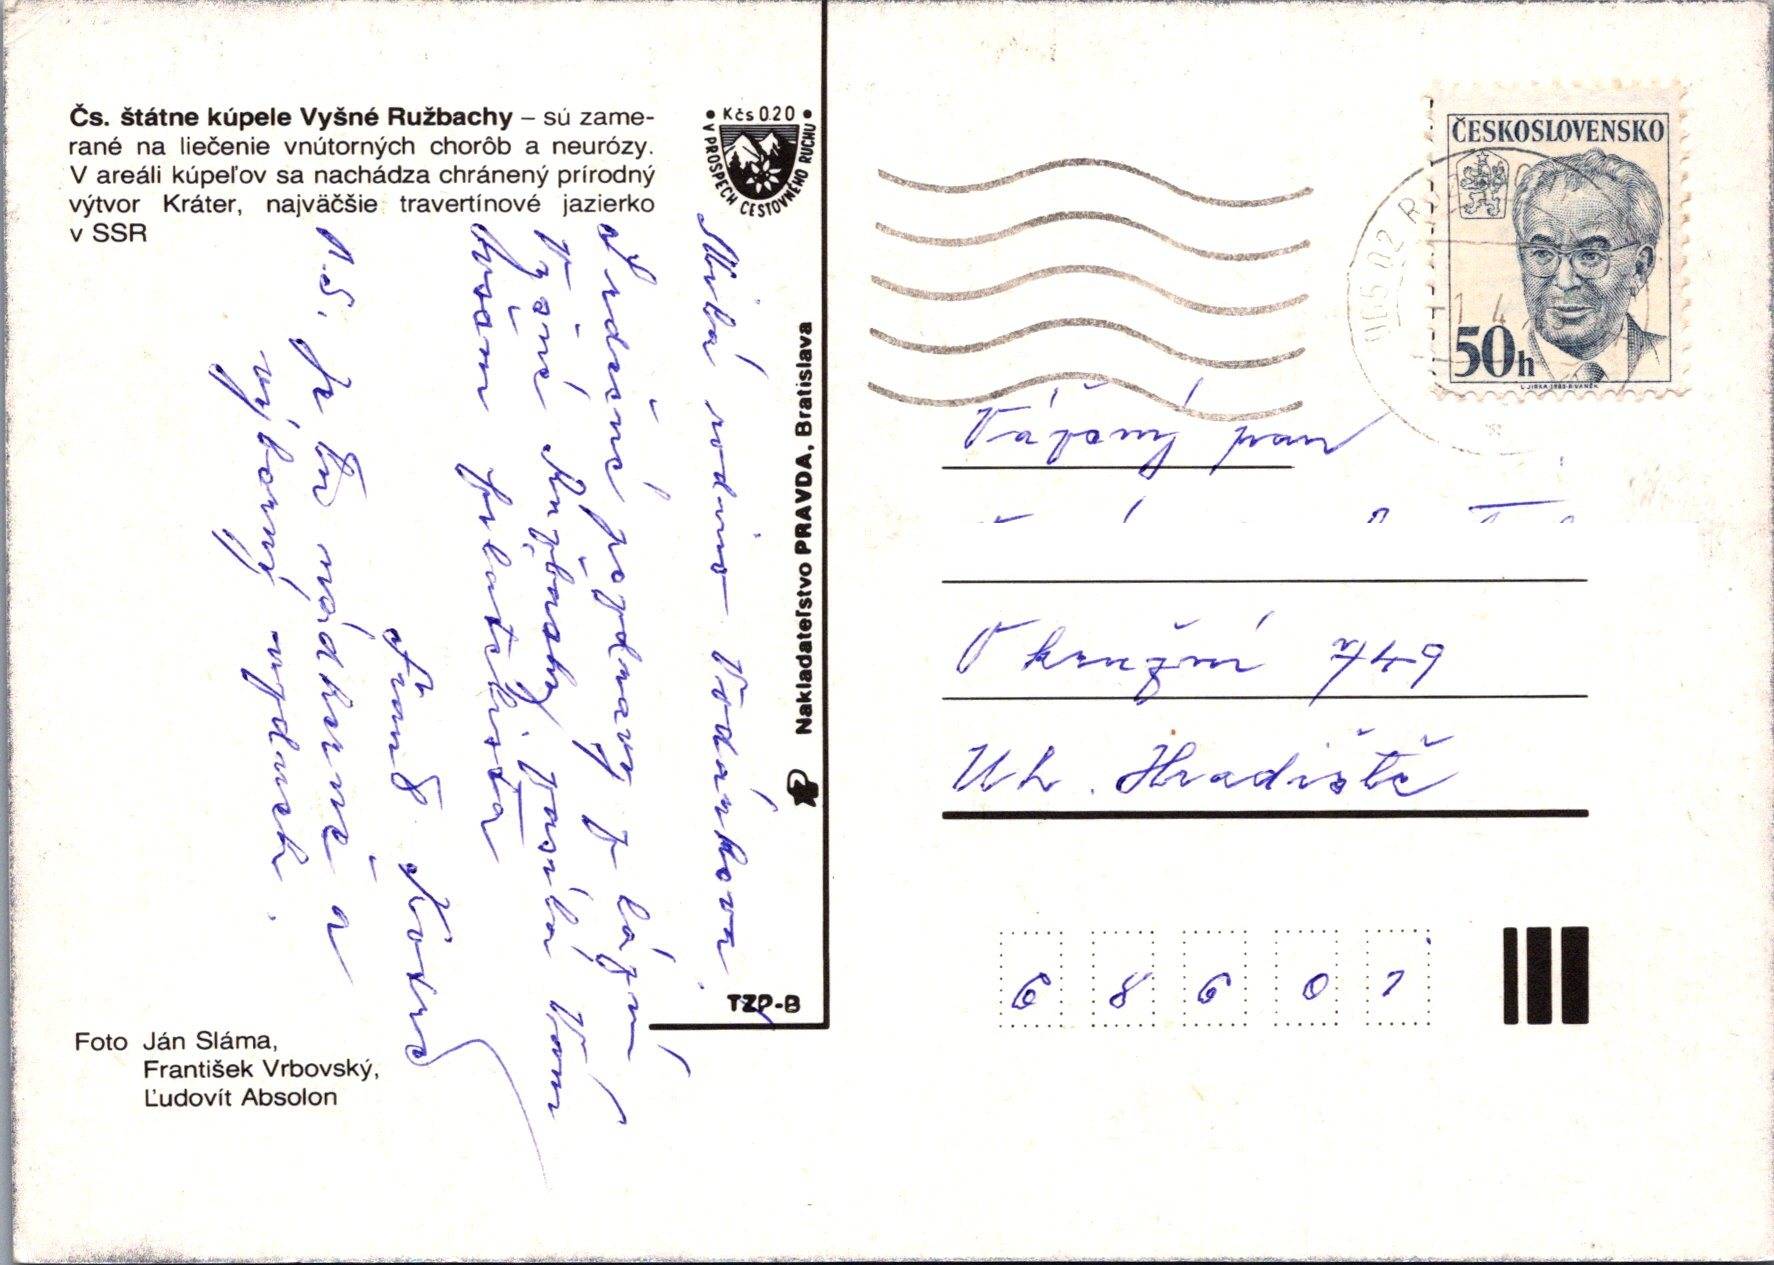 Čs. štátne kúpele Vyšné Ružbachy – sú zame-
rané na liečenie vnútorných chorôb a neurózy.
V areáli kúpeľov sa nachádza chránený prírodný
výtvor Kráter, najväčšie travertínové jazierko
v SSR
• Kčs 0.20 •
V PROSPECH CESTOVNÉHO RUCHU
Milá rodino Vodánkova.
Srdečné pozdravy z lázní
Vyšné Ružbachy posílá Vám
všem
P.S. Je tu nádherně a
výborný vzduch.
Foto Ján Sláma,
František Vrbovský,
Ľudovít Absolon
Nakladateľstvo PRAVDA, Bratislava
TZP-B
ČESKOSLOVENSKO
50h
L. JIRKA 1983 R. VANĚK
Vážený pan
749
Uh. Hradiště
6 8 6 0 1